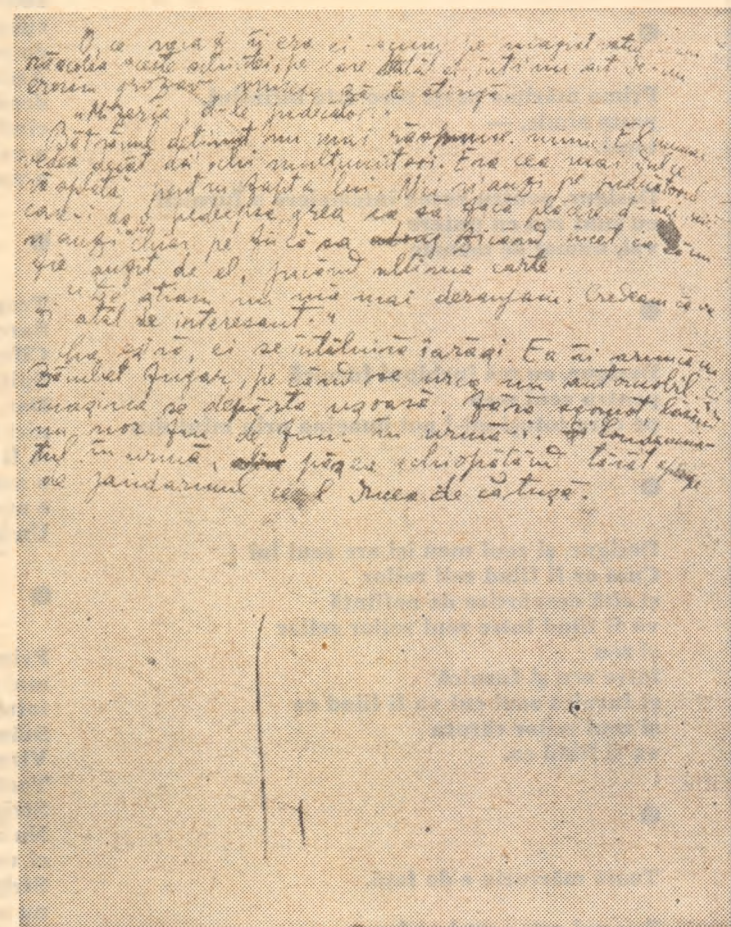 O, ce necaz îi era ei acum pe magistratul
răscolea aceste scântei, pe care atâta ei, întinu atât de-un
eroism grozav vroiau să le stingă.
"Mizeria, d-le judecător."
Bătrânul deținut nu mai răspunse nimic. El numai
vedea decât doi ochi mulțumitori. Era cea mai dulce
răsplată pentru fapta lui. Nici n'auzi pe judecătorul
care-i da o pedeapsă grea ca să facă plăcere d-nei
n'auzi chiar pe fiică-sa zicând încet, ca să nu
fie auzit de el, jucând ultima carte.
"De știam nu mă mai deranjam. Credeam că va
fi atât de interesant."
La gară, ei se întâlniră iarăși. Ea îi aruncă un
zâmbet fugar, pe când se urca în automobil. Și
mașina se depărta ușoară. fără zgomot lăsând
un nor fin de fum în urmă-i. Și condamna-
tul în urmă, pășea șchiopătând târât
de jandarmul ce-l ducea de cătușă.